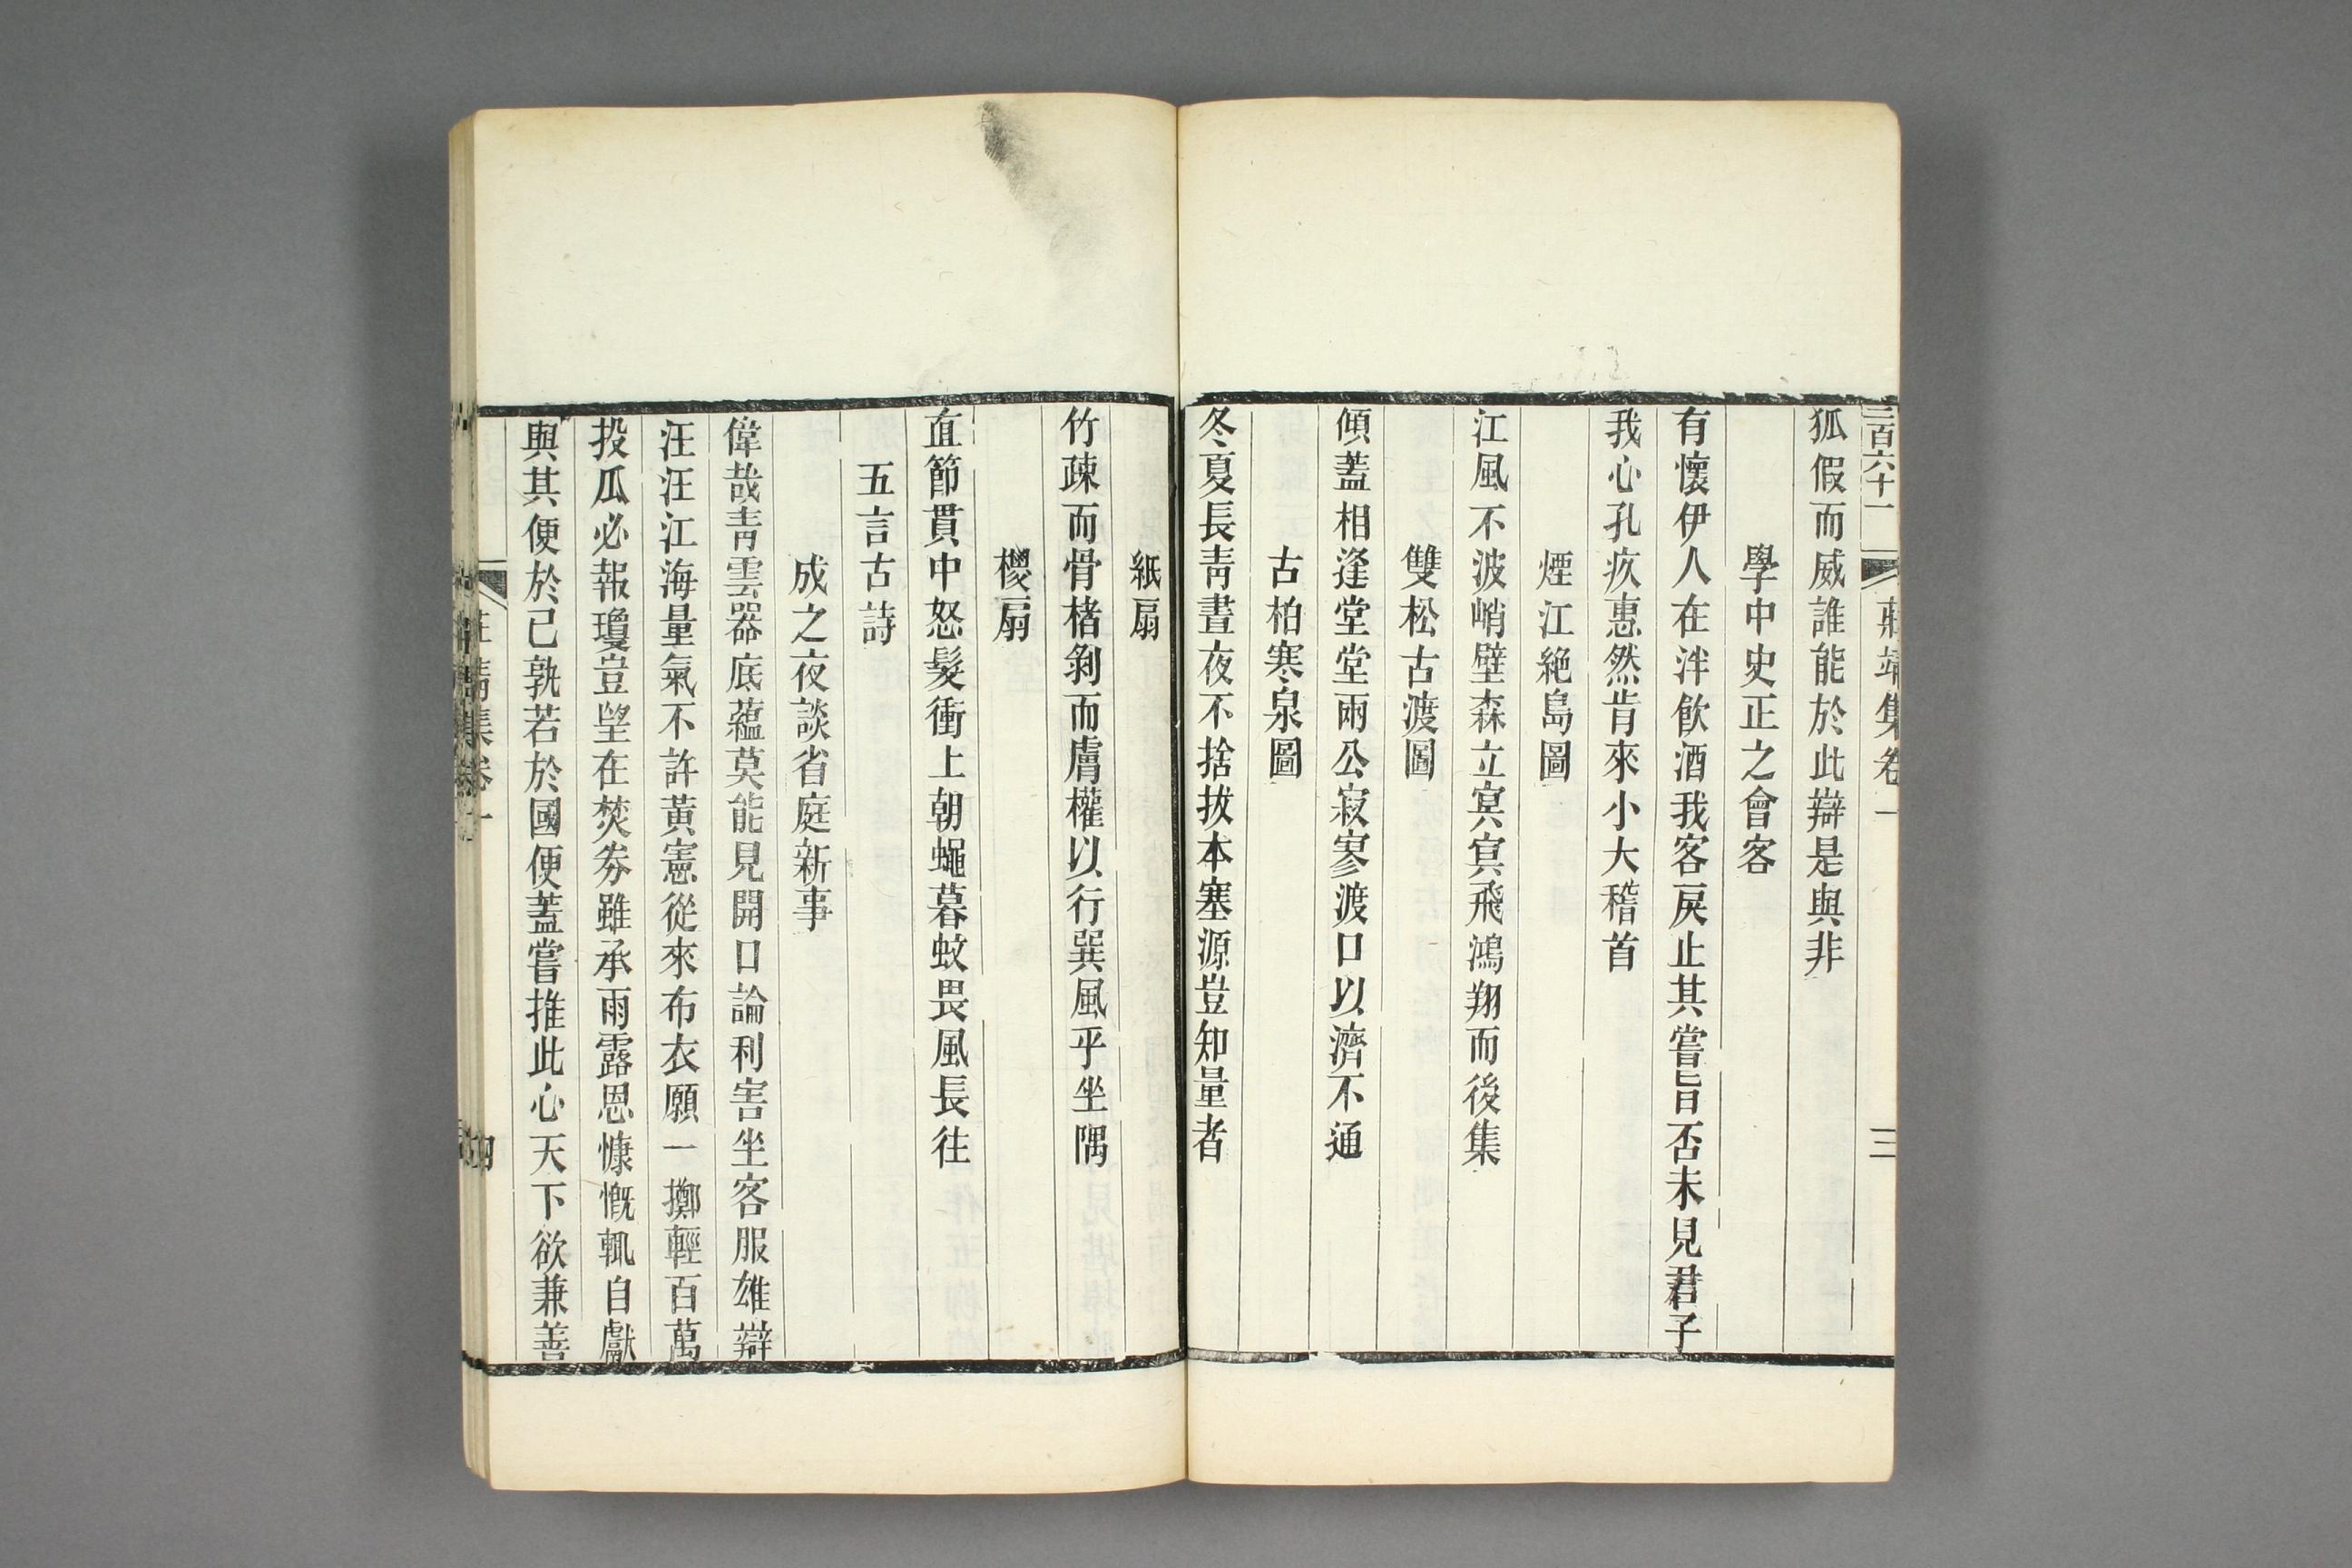 三百六十一 莊靖集卷一 三
狐假而威誰能於此辯是與非
學中史正之會客
有懷伊人在泮飮酒我客戾止其嘗旨否未見君子
我心孔疚惠然肯來小大稽首
煙江絕島圖
江風不波峭壁森立㝠㝠飛鴻翔而後集
雙松古渡圖
傾蓋相逢堂堂兩公寂寥渡口以濟不通
古柏寒泉圖
冬夏長靑晝夜不捨拔本塞源豈知量者
紙扇
竹疎而骨楮剝而膚權以行巽風乎坐隅
椶扇
直節貫中怒髮衝上朝蠅暮蚊畏風長往
五言古詩
成之夜談省庭新事
偉哉靑雲器底蘊莫能見開口論利害坐客服雄辯
汪汪江海量氣不許黃憲從來布衣願一擲輕百萬
投瓜必報瓊豈望在焚券雖承雨露恩慷慨輒自獻
與其便於己孰若於國便蓋嘗推此心天下欲兼善
莊靖集卷一 四